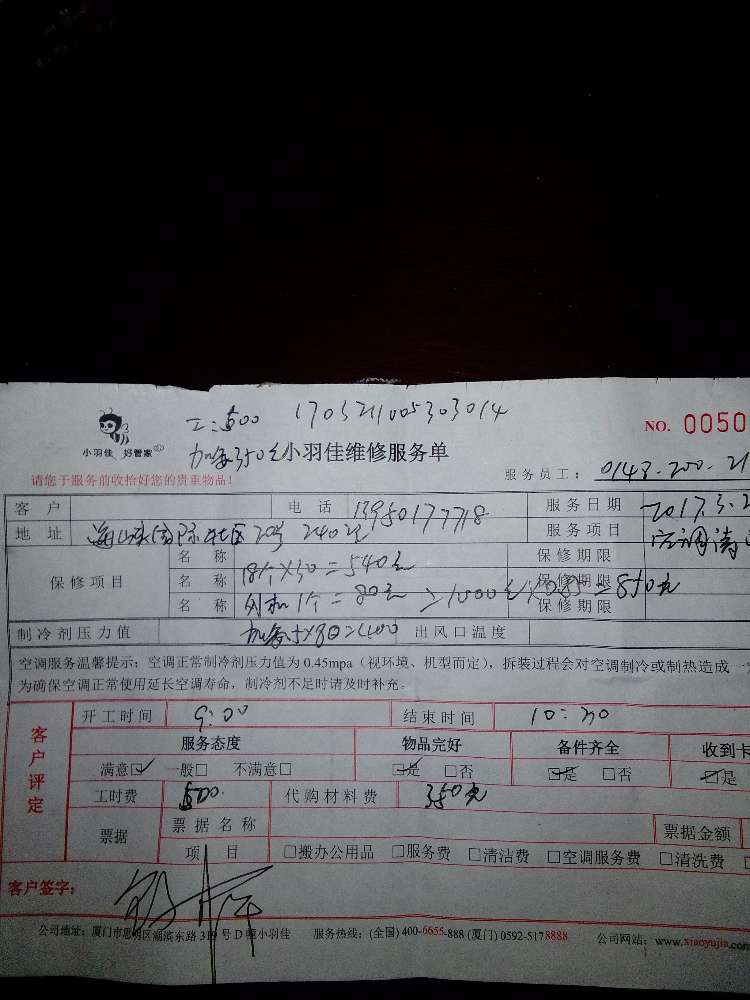 工:500 170321005303014
NO. 0050
小羽佳 好管家
加氟350元
小羽佳维修服务单
请您于服务前收拾好您的贵重物品!
服务员工: 0143.200.21
客户 电话 13950177718 服务日期 2017.3.2
地址 海峡国际社区20号2402 服务项目 空调清
保修项目 名称 保修期限
名称 18个×30=540元 保修期限
名称 外机1个=80元 保修期限 =850元
制冷剂压力值 加氟5×80=400 出风口温度
空调服务温馨提示:空调正常制冷剂压力值为0.45mpa(视环境、机型而定),拆装过程会对空调制冷或制热造成一
为确保空调正常使用延长空调寿命,制冷剂不足时请及时补充。
客户评定
开工时间 9:00 结束时间 10:30
服务态度 物品完好 备件齐全 收到卡
满意☑ 一般□ 不满意□ ☑是 □否 ☑是 □否 ☑是
工时费 500 代购材料费 350元
票据 票据名称 票据金额
项目 □搬办公用品 □服务费 □清洁费 □空调服务费 □清洗费
客户签字:
公司地址:厦门市思明区湖滨东路319号D幢小羽佳 服务热线:(全国)400-6655-888 (厦门)0592-5178888 公司网站:www.xiaoyujia.com